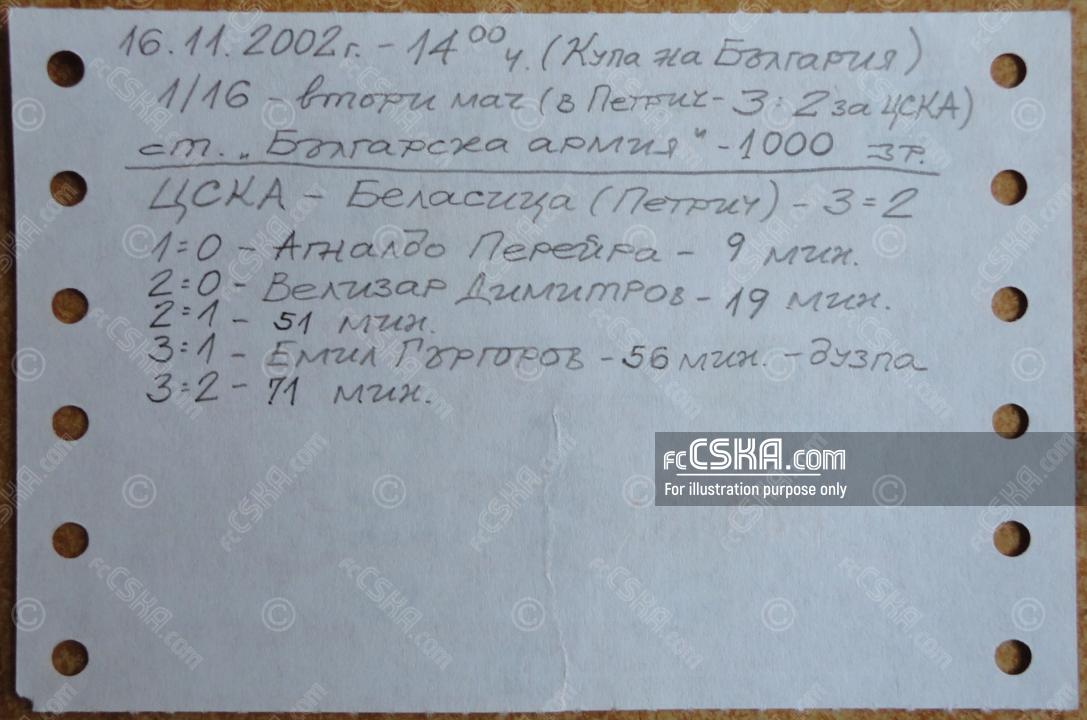 16.11.2002г. - 14⁰⁰ ч. (Купа на България)
1/16 - втори мач (в Петрич - 3:2 за ЦСКА)
ст. „Българска армия" - 1000 зр.
ЦСКА - Беласица (Петрич) - 3=2
1=0 - Агналдо Перейра - 9 мин.
2=0 - Велизар Димитров - 19 мин.
2=1 - 51 мин.
3=1 - Емил Гъргоров - 56 мин. - дузпа
3=2 - 71 мин.
fcCSKA.com
For illustration purpose only